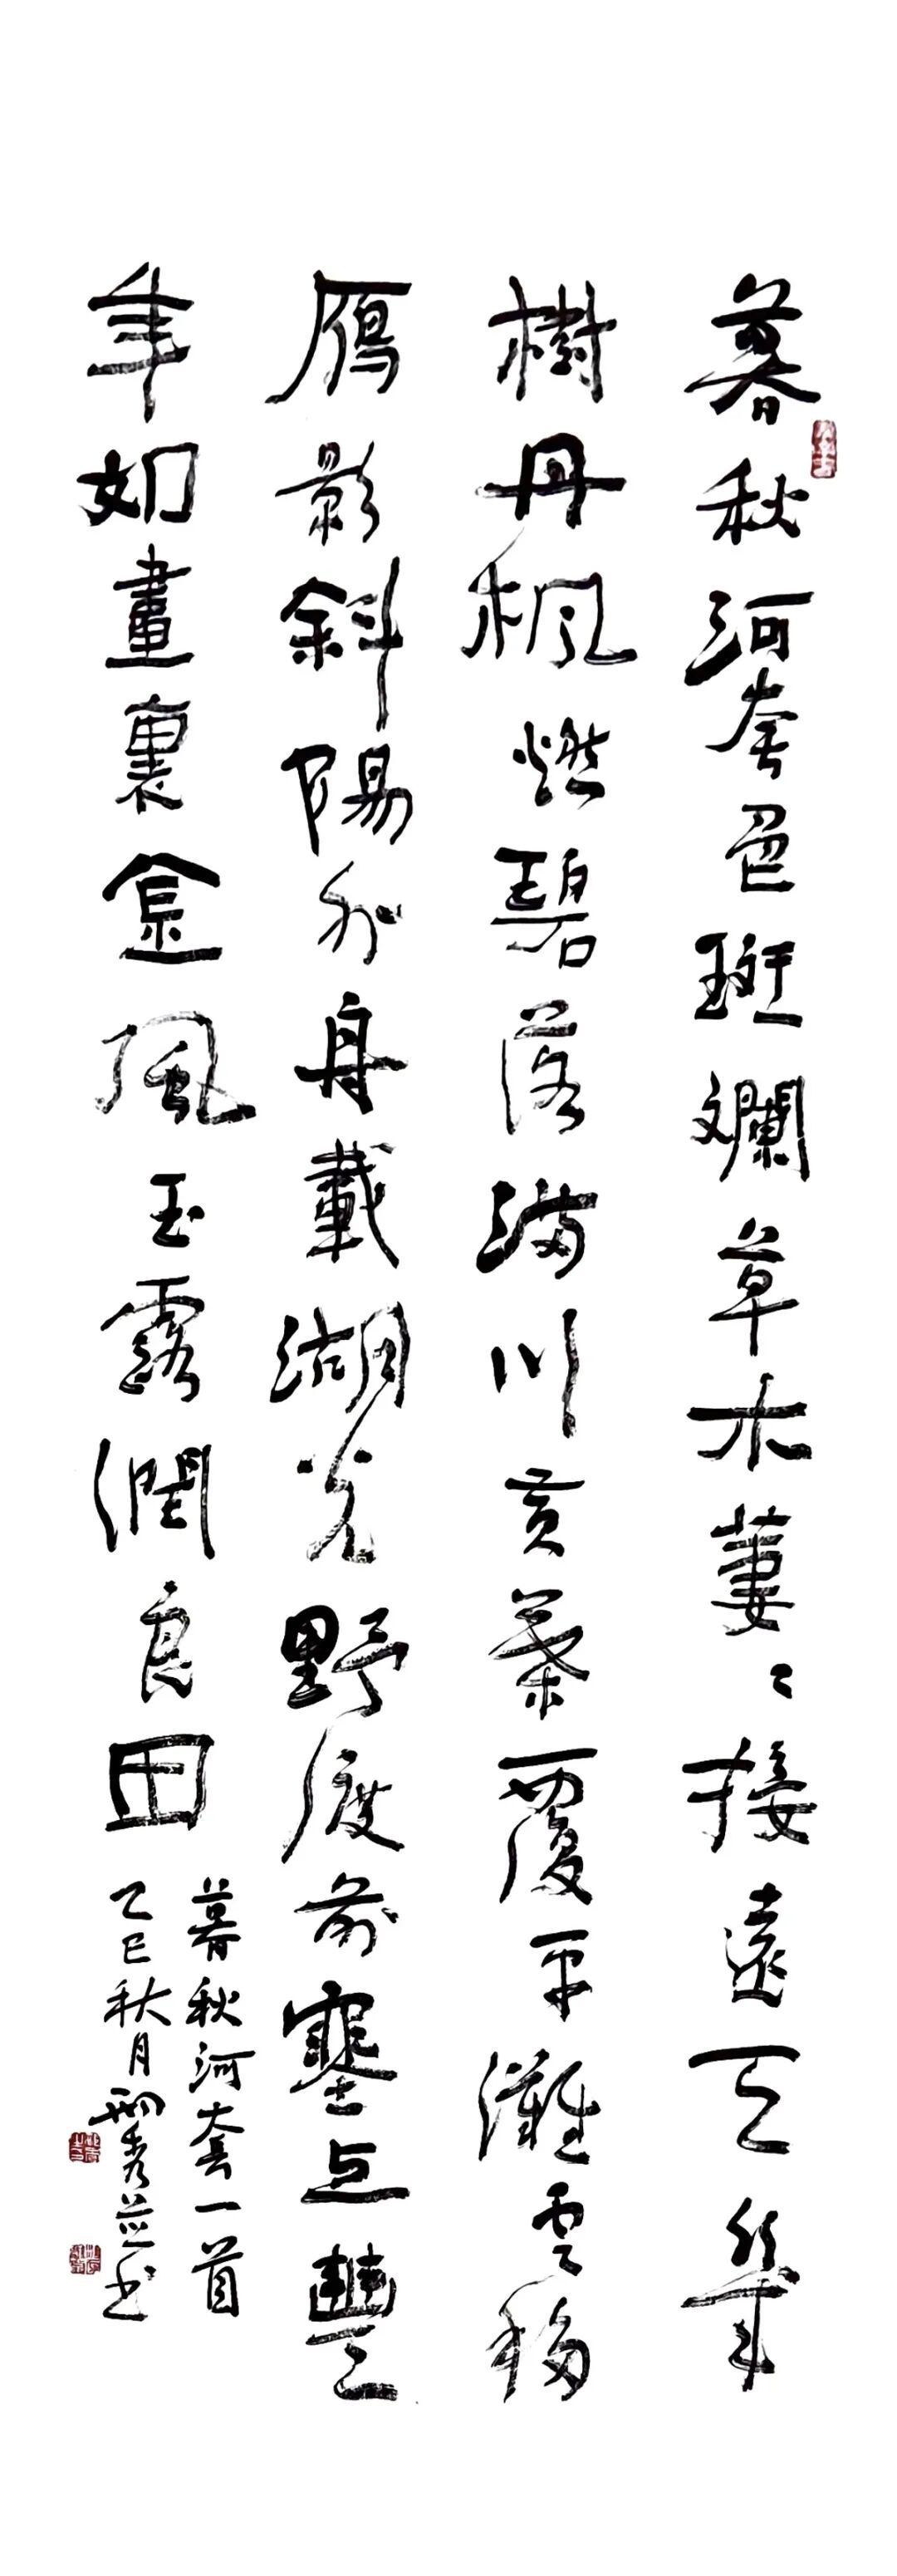 暮秋河套色斑斕草木萋〻接遠天幾
樹丹楓燃碧落滿川黃葉覆平灘雲移
雁影斜陽外舟載湖光野渡前塞上豐
年如畫裏金風玉露潤良田
暮秋河套一首
乙巳秋月邢秀芝书